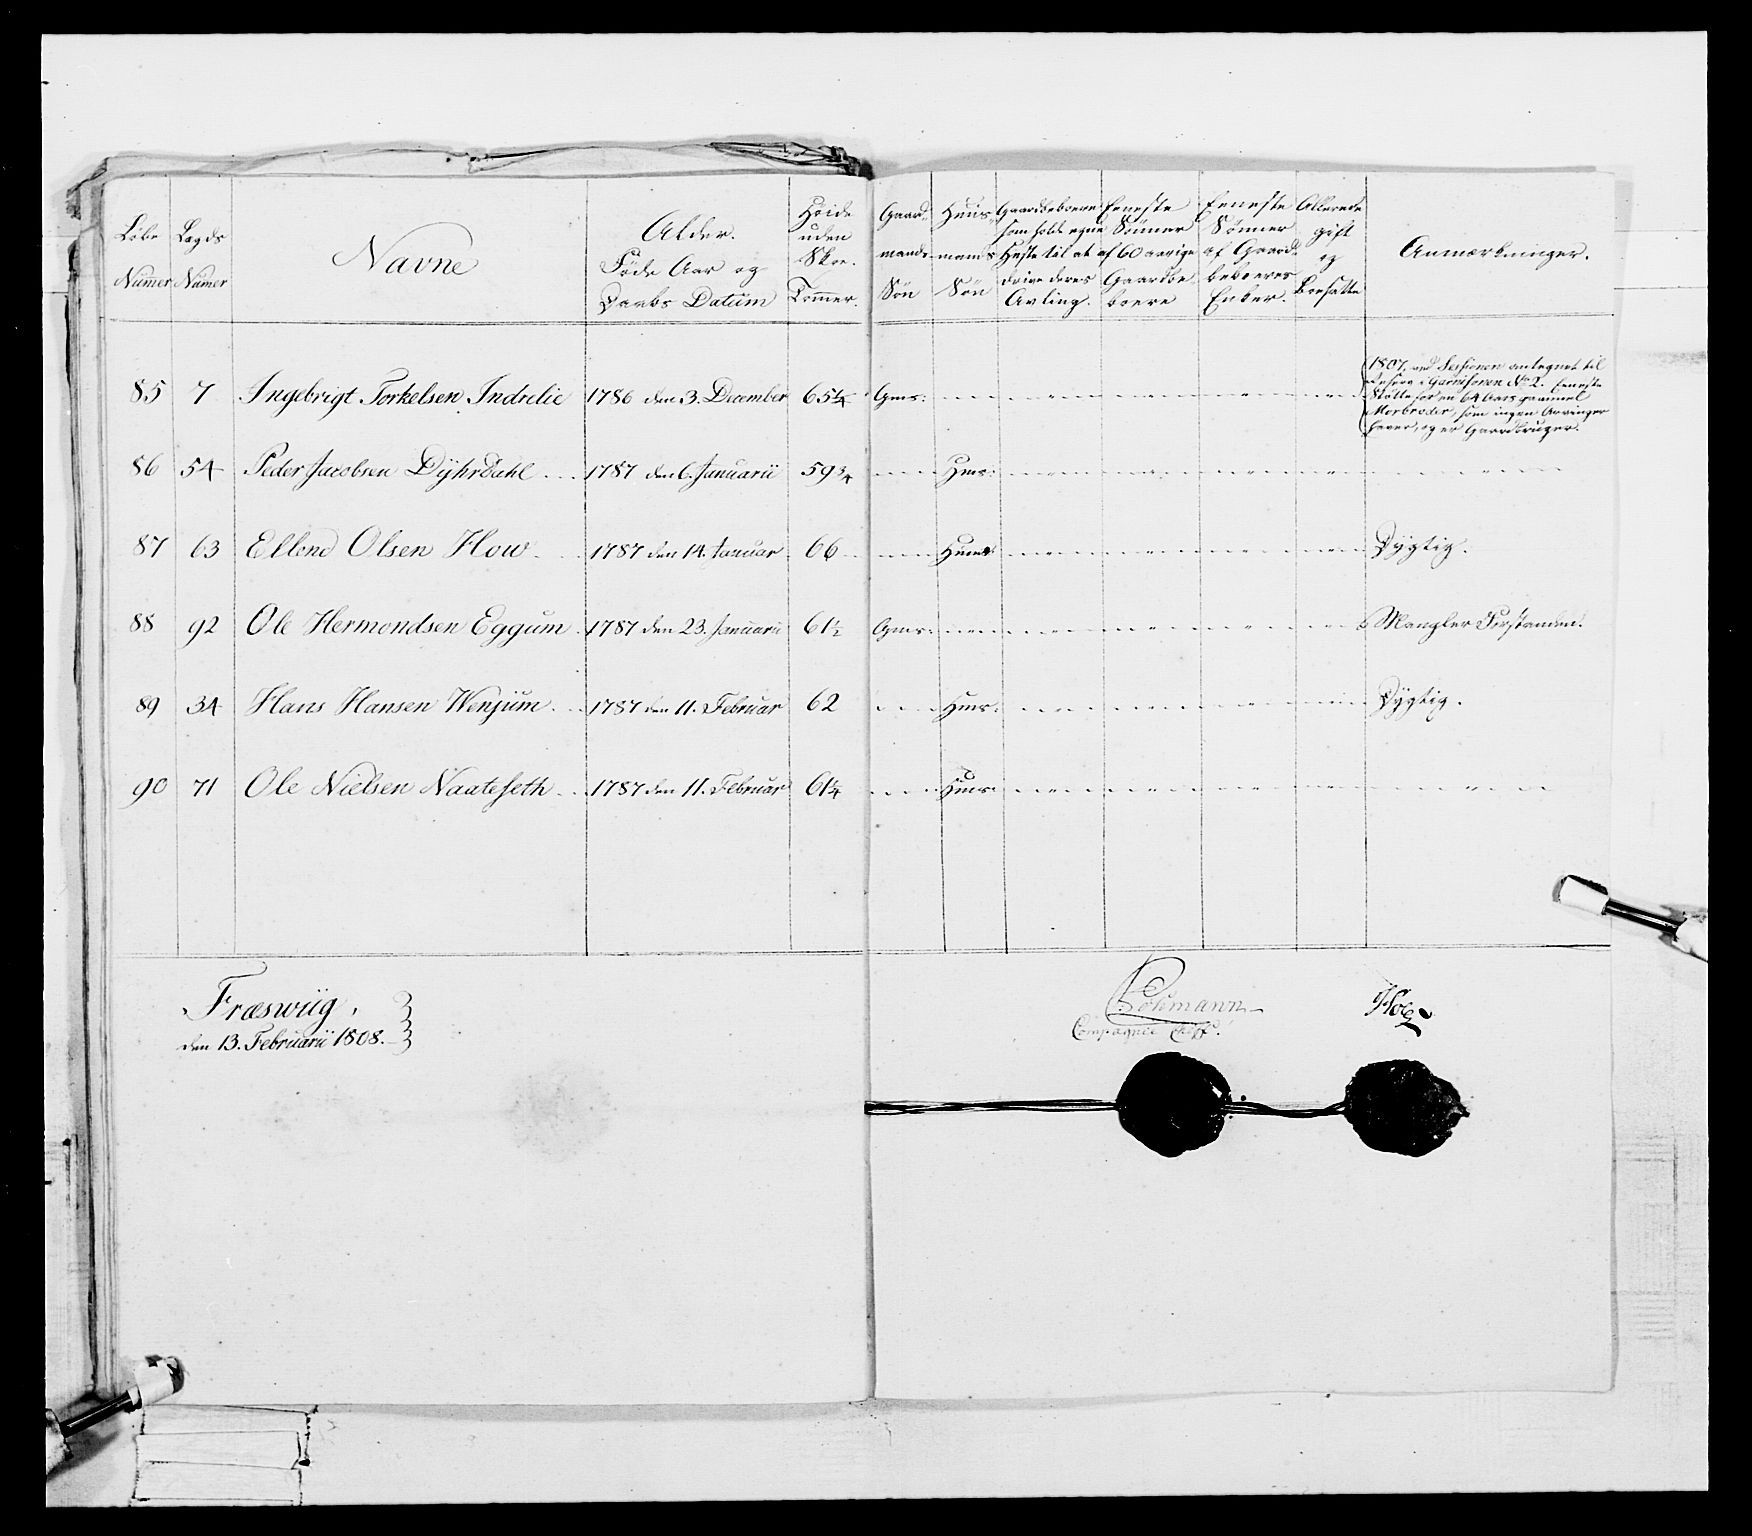 Löbe Numer
Lægds Numer
Navne
Alder. Föde Aar og Daabs Datum
Höide uden Skoe. Tommer.
Gaardmands Sön
Huusmands Sön
Gaardbeboere som holde egne Heste til at drive deres Avling.
Eeneste Sönner af 60 aarige Gaardbeboere
Eeneste Sönner af Gaardbeboeres Enker.
Allerede gift og bosatte
Anmærkninger.
85 7 Ingebrigt Torkelsen Indrelie 1786 den 3. December 65 1/4 Gms:
1807, ved Sessionen antegnet til
Reserve i Garnisonen No 2. Eeneste
Stötte for en 64 Aars gammel
Morbroder, som ingen Arvinger
haver, og er Gaardbruger.
86 54 Peder Jacobsen Dÿhrdahl 1787 den 6. Januarii 59 3/4 Hms:
87 63 Ellend Olsen How 1787 den 14. Januar 66 Hms: Dÿgtig.
88 92 Ole Hermondsen Eggum 1787 den 23. Januarii 61 1/2 Gms: Mangler Forstanden.
89 34 Hans Hansen Wenjum 1787 den 11. Februar 62 Hms: Dÿgtig.
90 71 Ole Nielsen Naateseth 1787 den 11. Februar 61 1/4 Hms:
Fræswiig,
den 13. Februarii 1808.
Compagnie Cheff.